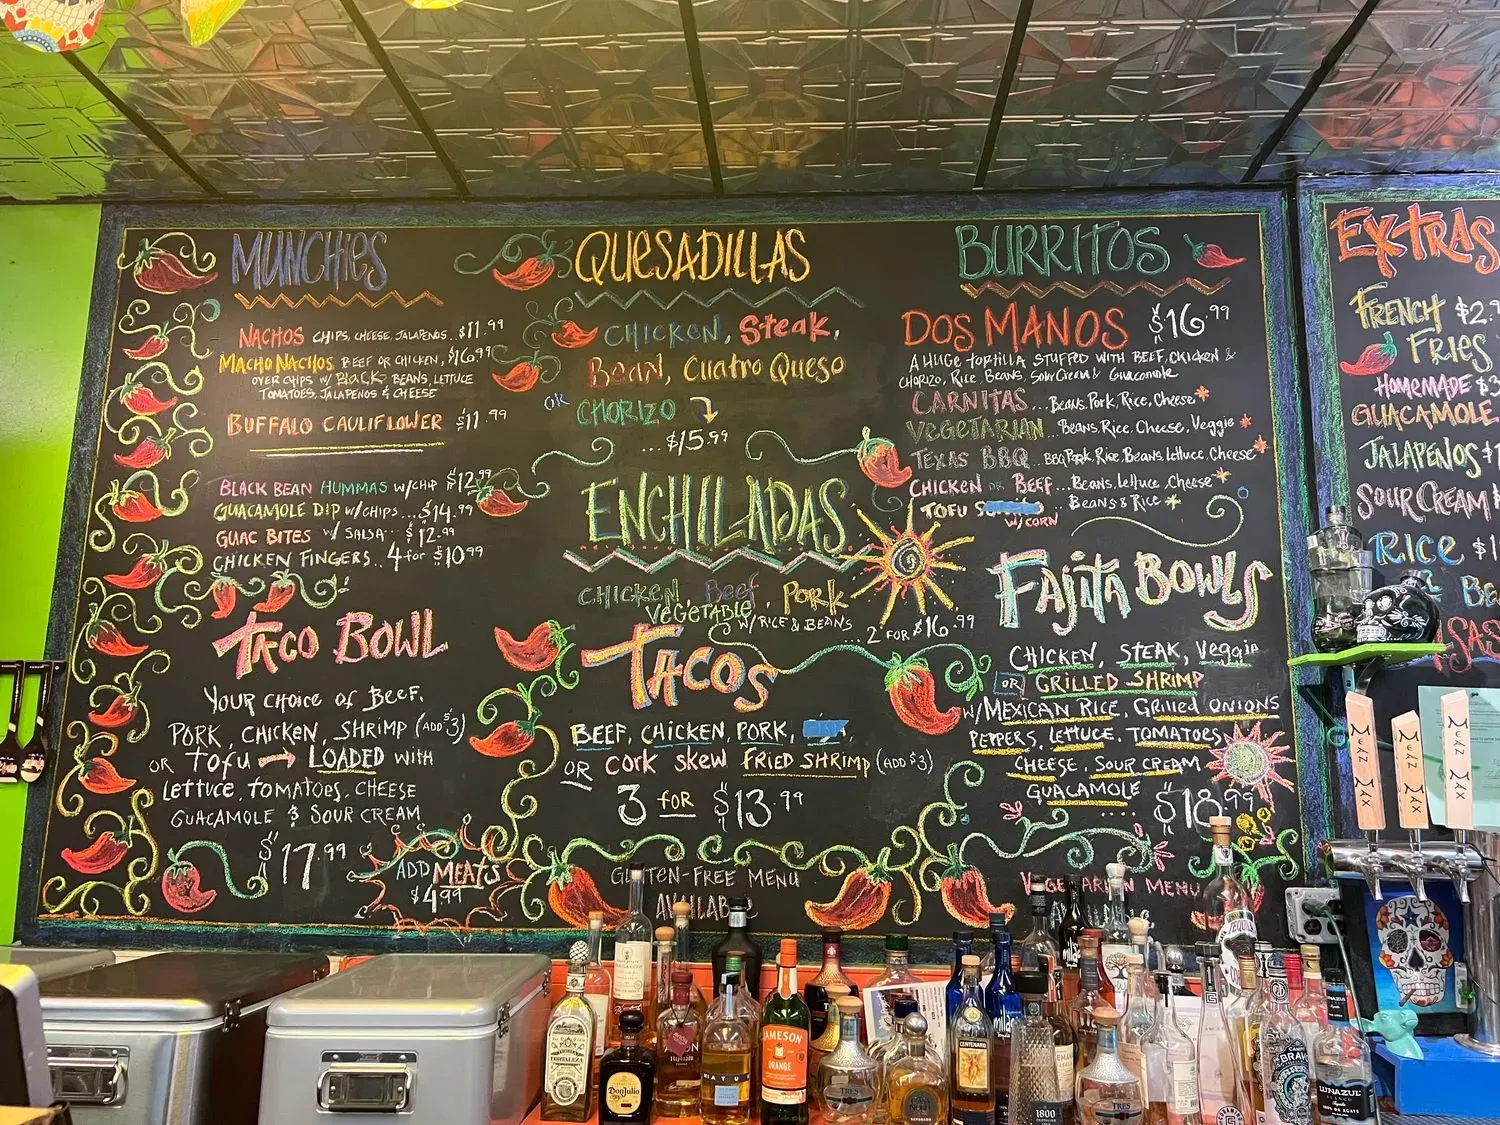 MUNCHIES
NACHOS CHIPS, CHEESE, JALAPENOS..$11.99
MACHO NACHOS BEEF OR CHICKEN, $16.99
OVER CHIPS W/ Black BEANS, LETTUCE
TOMATOES, JALAPENOS & CHEESE
BUFFALO CAULIFLOWER $11.99
BLACK BEAN HUMMAS W/CHIP $12.99
GUACAMOLE DIP W/CHIPS...$14.99
GUAC BITES W/ SALSA.. $12.99
CHICKEN FINGERS.. 4 for $10.99
TACO BOWL
YOUR CHOICE of BEEF,
PORK, CHICKEN, SHRIMP (ADD $3)
OR Tofu → LOADED WITH
Lettuce, tomatoes, CHEESE
GUACAMOLE & SOUR CREAM
$17.99
ADD MEATS
$4.99
QUESADILLAS
CHICKEN, Steak,
Bean, Cuatro Queso
OR CHORIZO
...$15.99
ENCHILADAS
CHICKEN, Beef, PORK
VEGETABLE
W/RICE & BEANS
...2 FOR $16.99
TACOS
BEEF, CHICKEN, PORK,
OR cork skew FRIED SHRIMP (ADD $3)
3 for $13.99
GLUTEN-FREE MENU
AVAILAB
BURRITOS
DOS MANOS $16.99
A HUGE tortilla STUFFED WITH BEEF, CHICKEN &
CHORIZO, Rice, Beans, Sour Cream & Guacamole
CARNITAS...Beans, Pork, Rice, Cheese*
VEGETARIAN...Beans, Rice, Cheese, Veggie*
TEXAS BBQ...BBQ Pork, Rice, Beans, Lettuce, Cheese*
CHICKEN OR BEEF...Beans, Lettuce, Cheese*
TOFU Beans & Rice*
W/CORN
FAJITA BOWLS
CHICKEN, STEAK, Veggie
OR GRILLED SHRIMP
W/MEXICAN RICE, GRILLED ONIONS
PEPPERS, LETTUCE, TOMATOES
CHEESE, SOUR CREAM
GUACAMOLE
....$18.99
VEGETARIAN MENU
EXTRAS
FRENCH $2.
FRIES
HOMEMADE $3
GUACAMOLE
JALAPENOS $1
SOUR CREAM
RICE $1
BE
MEAN MAX
MEAN MAX
MEAN MAX
FORTALEZA
Don Julio
JAMESON
ORANGE
CENTENARIO
mila
TRES
1800
TRES
TEQUILA
LUNAZUL